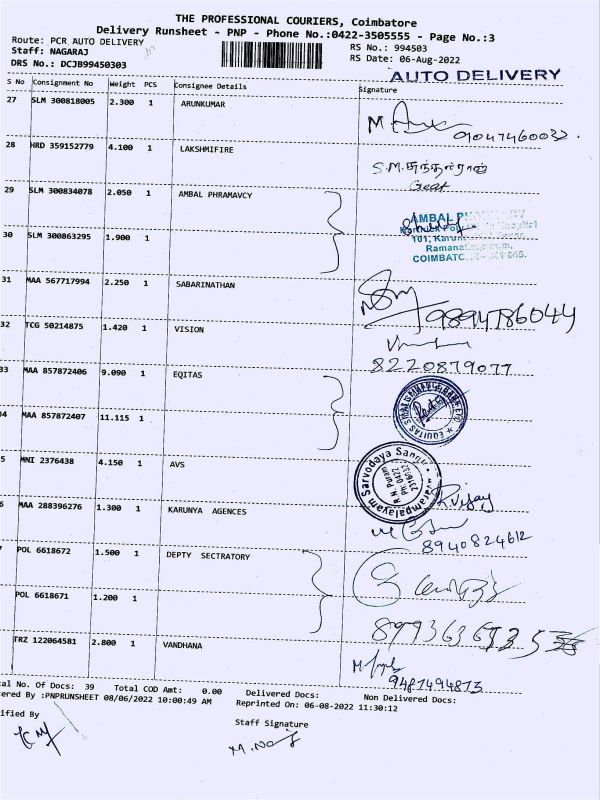 THE PROFESSIONAL COURIERS, Coimbatore
Delivery Runsheet - PNP - Phone No.:0422-3505555 - Page No.:3
Route: PCR AUTO DELIVERY RS No.: 994503
Staff: NAGARAJ RS Date: 06-Aug-2022
DRS No.: DCJB99450303
AUTO DELIVERY
S No Consignment No Weight PCS Consignee Details Signature
27 SLM 300818005 2.300 1 ARUNKUMAR
9047460032.
28 HRD 359152779 4.100 1 LAKSHMIFIRE
29 SLM 300834078 2.050 1 AMBAL PHRAMAVCY
AMBAL
30 SLM 300863295 1.900 1
101,
COIMBATO
31 MAA 567717994 2.250 1 SABARINATHAN
9894786044
32 TCG 50214875 1.420 1 VISION
8220879077
33 MAA 857872406 9.090 1 EQITAS
34 MAA 857872407 11.115 1
EQUITAS SMALL FINANCE BANK LTD
5 MNI 2376438 4.150 1 AVS
Sarvodaya Sangh
R.N. Puram
Ph: 0422
R.Vijay
6 MAA 288396276 1.300 1 KARUNYA AGENCES
8940824612
7 POL 6618672 1.500 1 DEPTY SECTRATORY
POL 6618671 1.200 1
TRZ 122064581 2.800 1 VANDHANA
9487494873
tal No. Of Docs: 39 Total COD Amt: 0.00 Delivered Docs: Non Delivered Docs:
tered By :PNPRUNSHEET 08/06/2022 10:00:49 AM Reprinted On: 06-08-2022 11:30:12
ified By Staff Signature